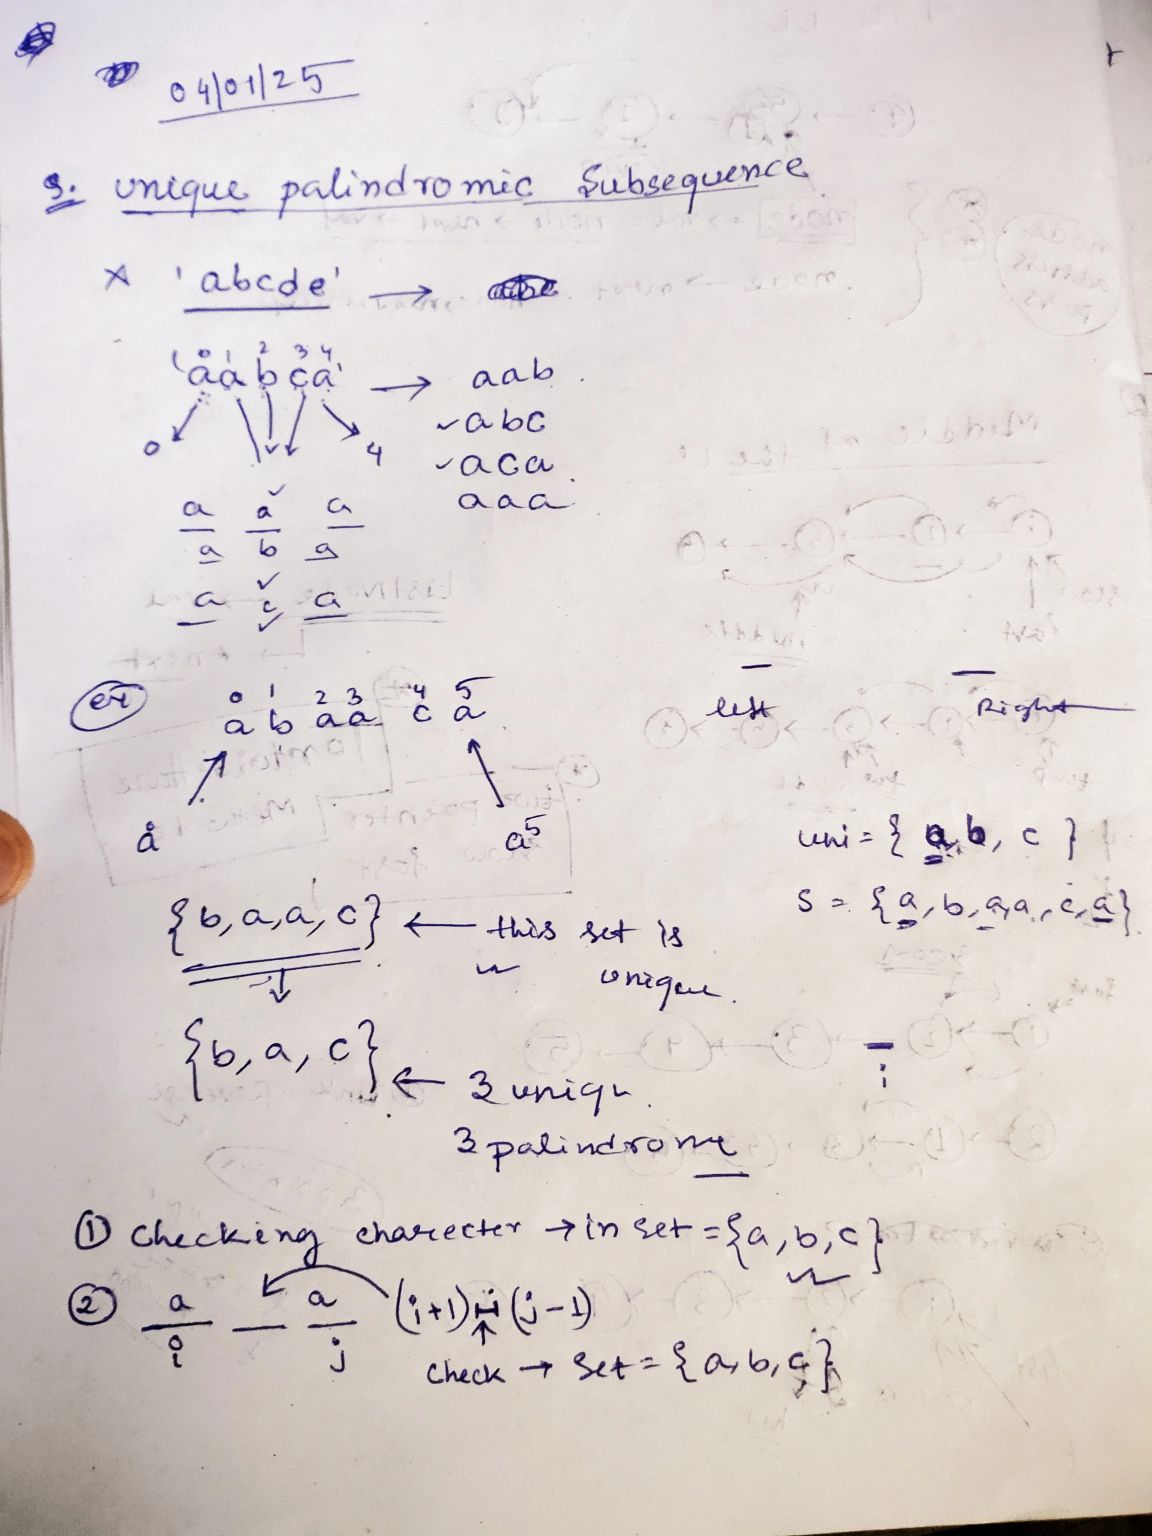 04/01/25
Q. unique palindromic Subsequence
'abcde' →
0 1 2 3 4
'aabca' → aab
✓abc
0 4
✓aca
a a a aaa
a b a
a c a
ex
0 1 2 3 4 5
a b a a c a
left Right
a0 a5
uni = { a, b, c }
{b,a,a,c} ← this set is unique.
S = {a, b, a, a, c, a}
{b, a, c} ← 3 uniqu.
i
3 palindrome
① Checking charecter → in set = {a, b, c}
② a _ a (i+1) (j-1)
i j
Check → Set = {a, b, c}